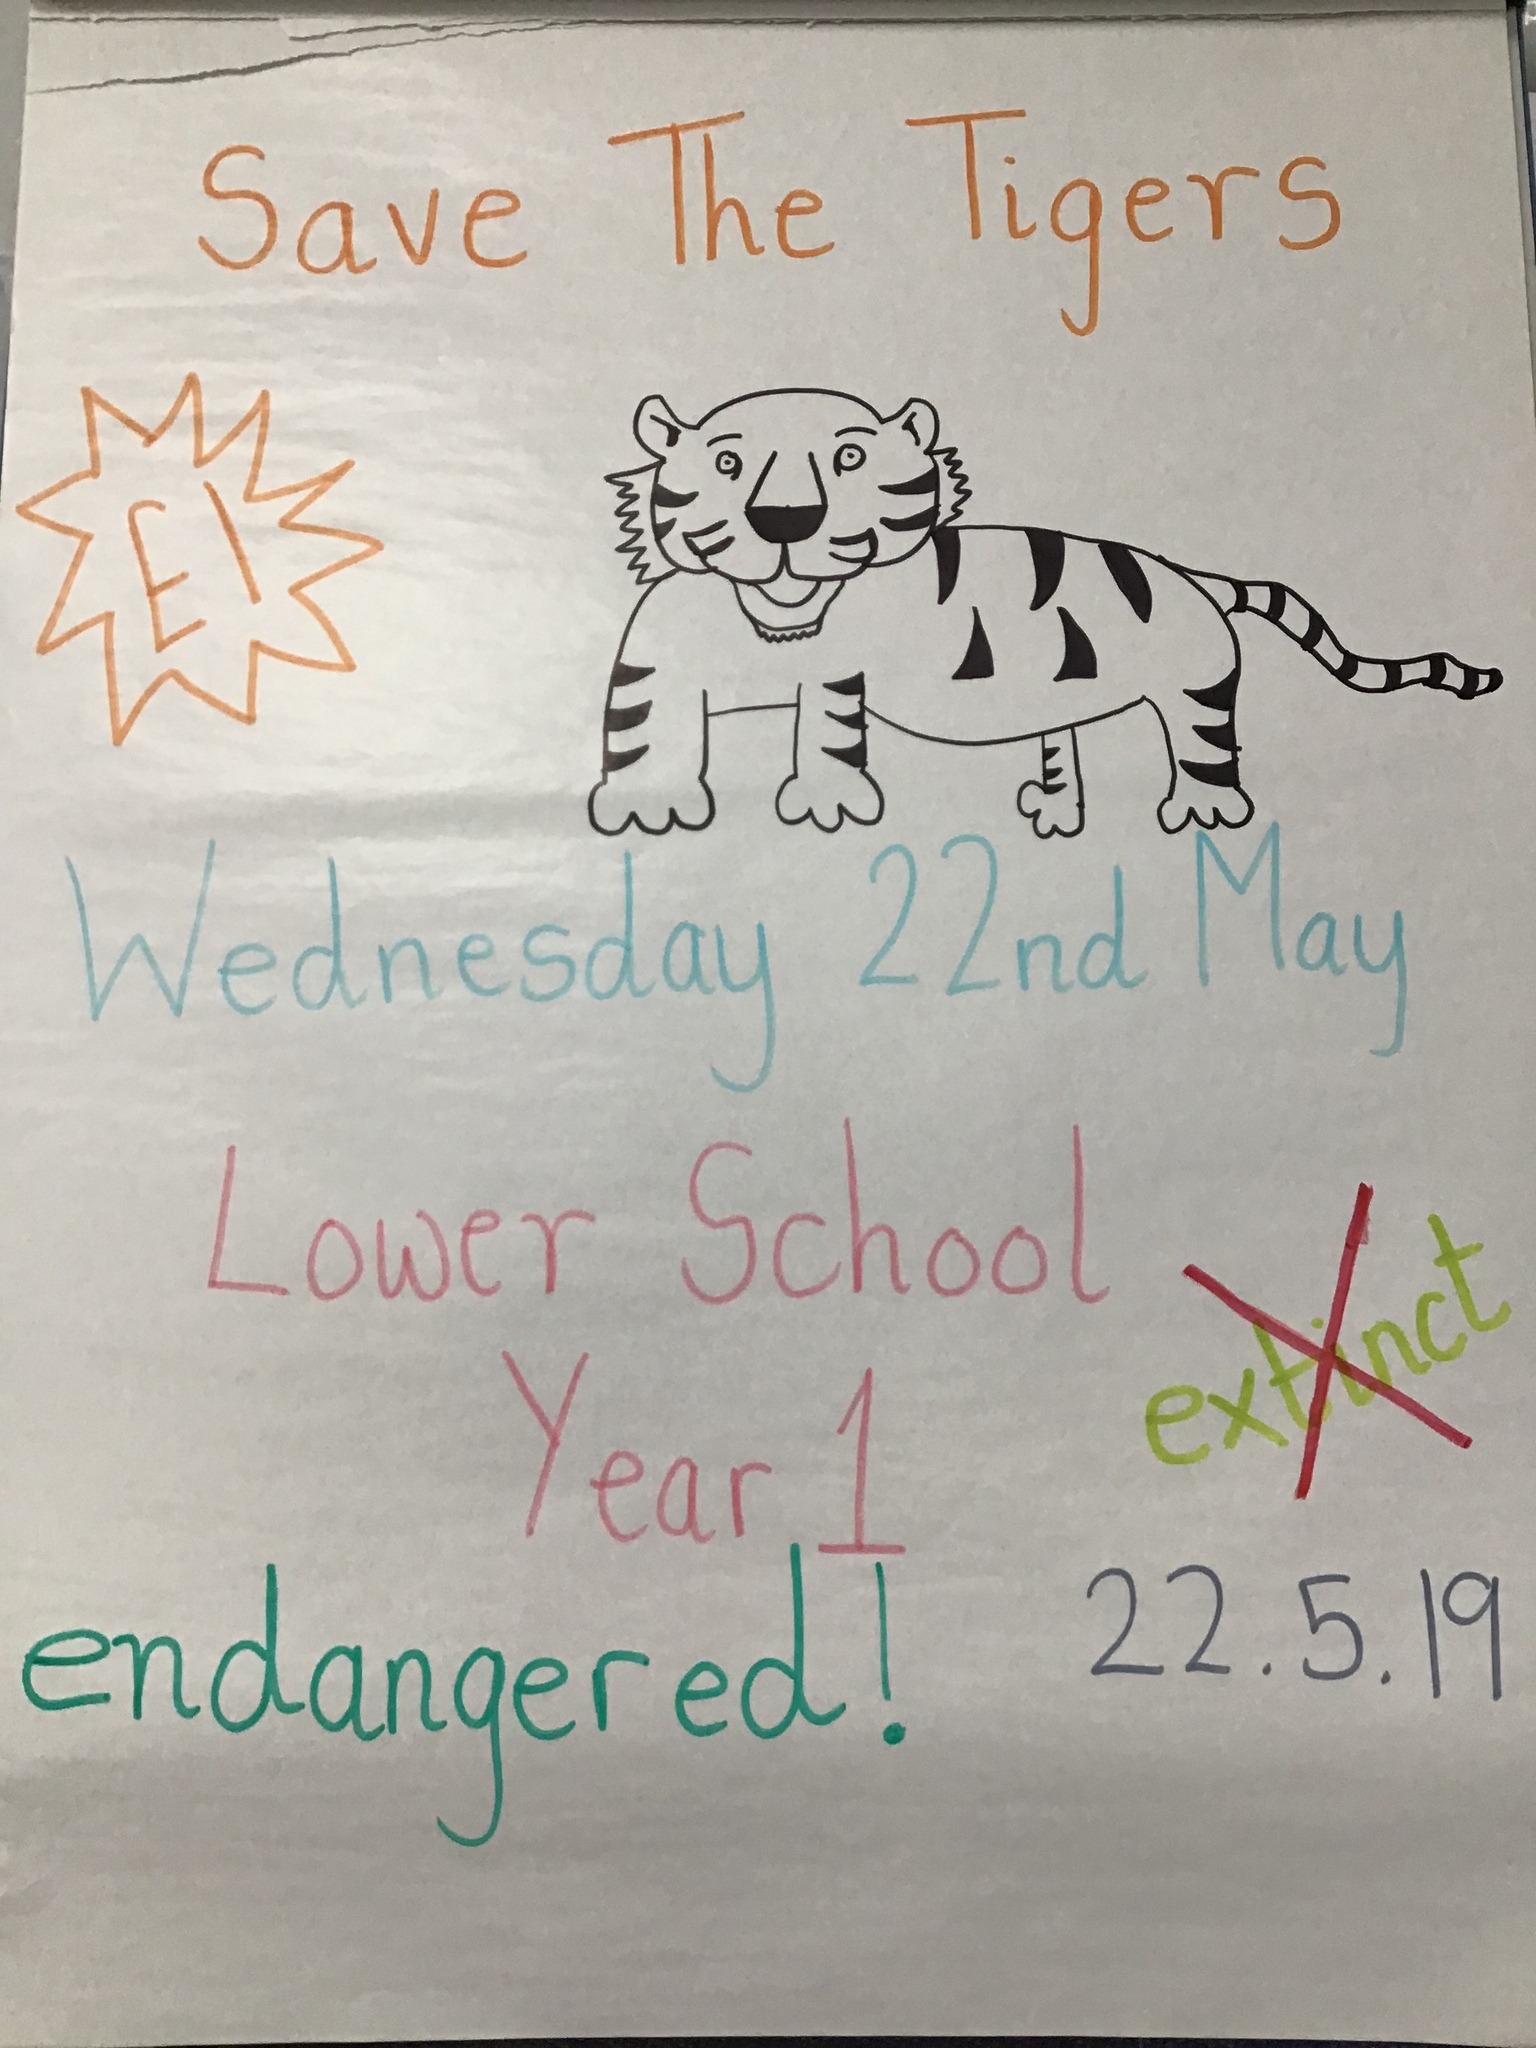 Save The Tigers
£1
Wednesday 22nd May
Lower School
extinct
Year 1
endangered!
22.5.19